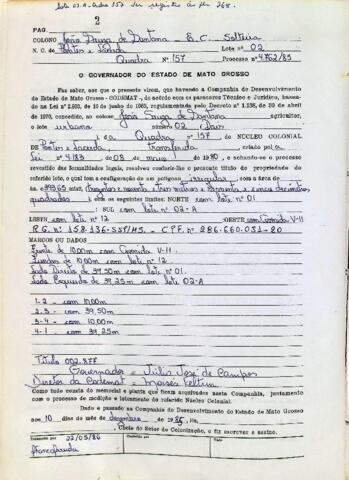 Lote 02-A. Quadra 157 ver registro às fls 268.
2
PAG.
COLONO José Souza de Santana - B.C. Solteiro
N. C. de Pontes e Lacerda Lote nº 02
Quadra Nº 157 Processo nº 4762/85
O GOVERNADOR DO ESTADO DE MATO GROSSO
Faz saber, aos que a presente virem, que havendo a Companhia de Desenvolvimento
do Estado de Mato Grosso - CODEMAT, de acordo com os pareceres Técnico e Jurídico, basea-
do na Lei nº 2.933, de 10 de junho de 1969, regulamentada pelo Decreto nº 1.138, de 30 de abril
de 1970, concedido, ao colono José Souza de Santana agricultor,
o lote urbano número 02 (Dois)
da Quadra nº 157 NÚCLEO COLONIAL
de Pontes e Lacerda, transferida criado pela
Lei nº 4.183 de 08 de maio de 1980, e achando-se o processo
revestido das formalidades legais, resolveu conferir-lhe o presente título de propriedade do
referido lote, o qual tem a configuração de um polígono irregular com a área de
393,65 mts² (trezentos e noventa e três metros e sessenta e cinco decímetros
quadrados) com os seguintes limites: NORTE com lote nº 01
; SUL com lote nº 02-A
LESTE com lote nº 12 OESTE com Avenida V-11
R.G. nº 158.136-SSP/MS. - C.P.F. nº 286.660.031-20
MARCOS OU DADOS
Frente de 10,00m com Avenida V-11.
Fundos de 10,00m com lote nº 12.
Lado Direito de 39,50m com lote nº 01.
Lado Esquerdo de 39,25m com lote 02-A
1-2 - com 10,00m
2-3 - com 39,50m
3-4 - com 10,00m
4-1 - com 39,25m
Título 002.377
Governador = Júlio José de Campos
Diretor da Codemat = Moisés Feltrin
Como tudo consta do memorial e planta que ficam arquivados nesta Companhia, juntamente
com o processo de medição e loteamento do referido Núcleo Colonial.
Dado e passado na Companhia de Desenvolvimento do Estado de Mato Grosso
aos 10 dias do mês de dezembro de 1985, Eu
, Chefe do Setor de Colonização, a fiz escrever e assino.
22/05/86